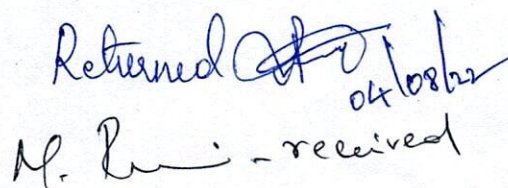 Returned
04/08/22
M. - received